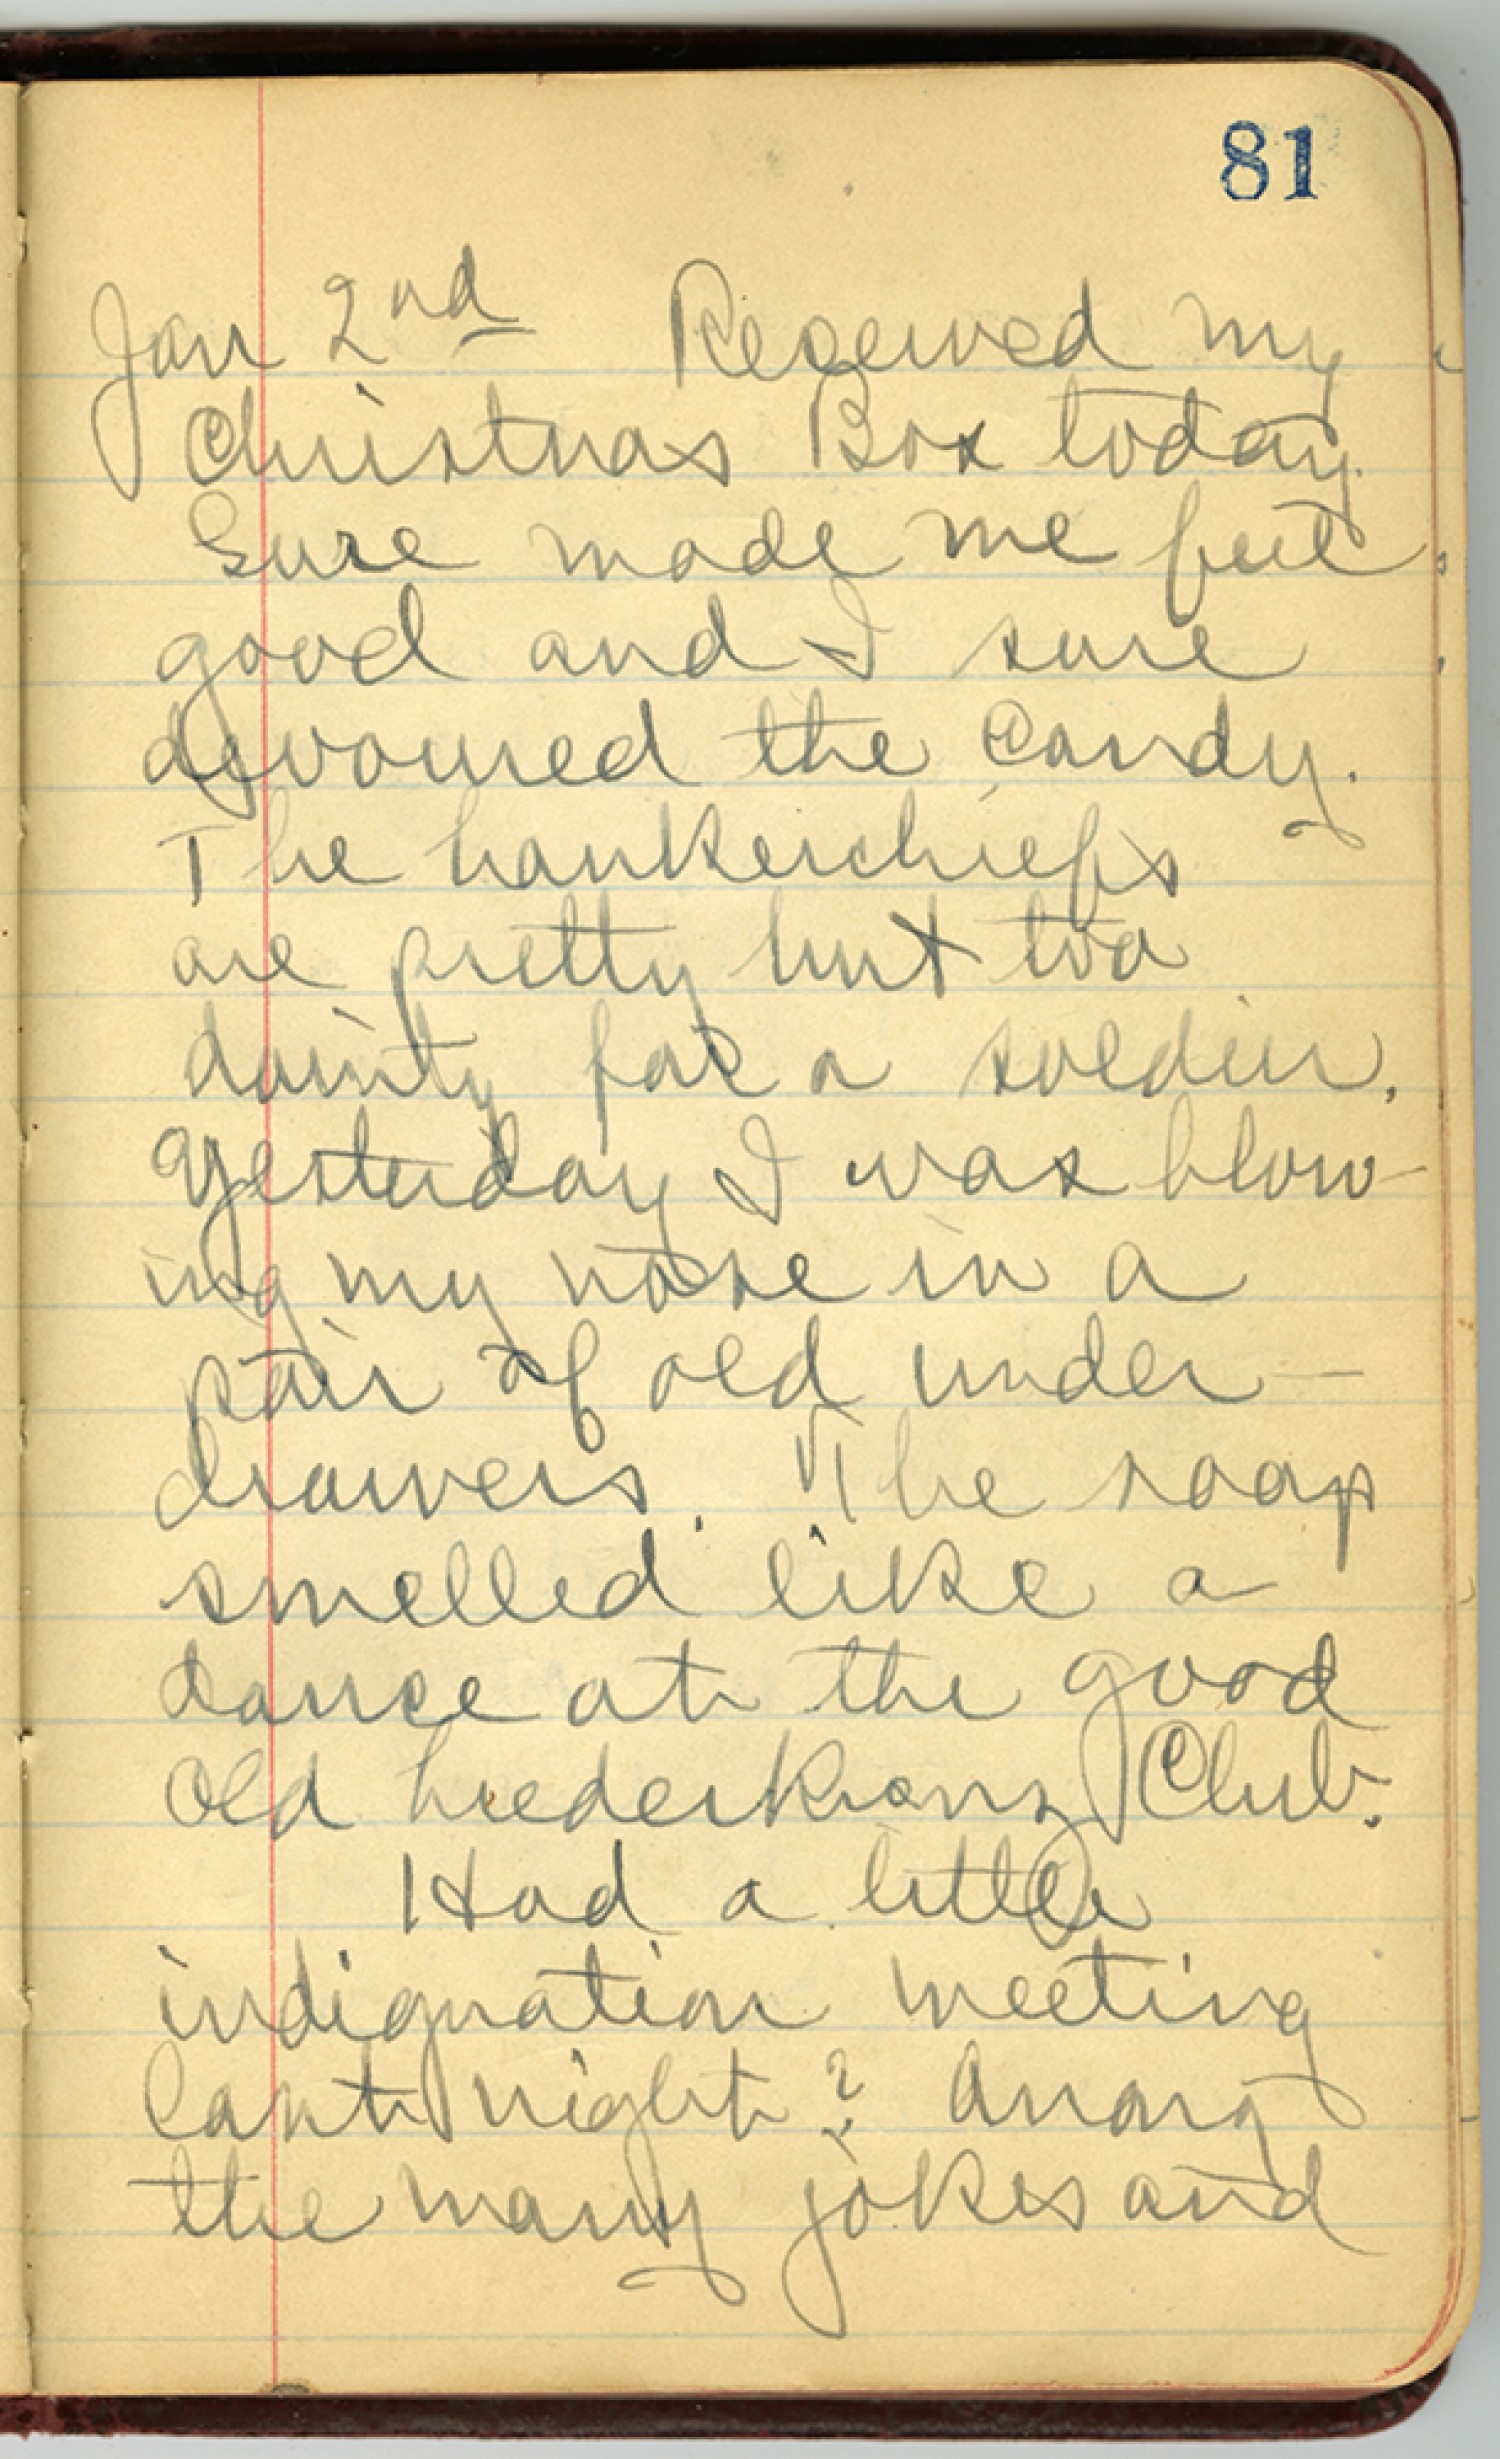 81
Jan 2nd Received my
Christmas Box today.
Sure made me feel
good and I sure
devoured the Candy.
The hankerchiefs
are pretty but too
dainty for a soldier.
Yesterday I was blow-
ing my nose in a
pair of old under-
drawers. The soap
smelled like a
dance at the good
Old Liederkranz Club.
Had a little
indignation meeting
last night? Among
the many jokes and